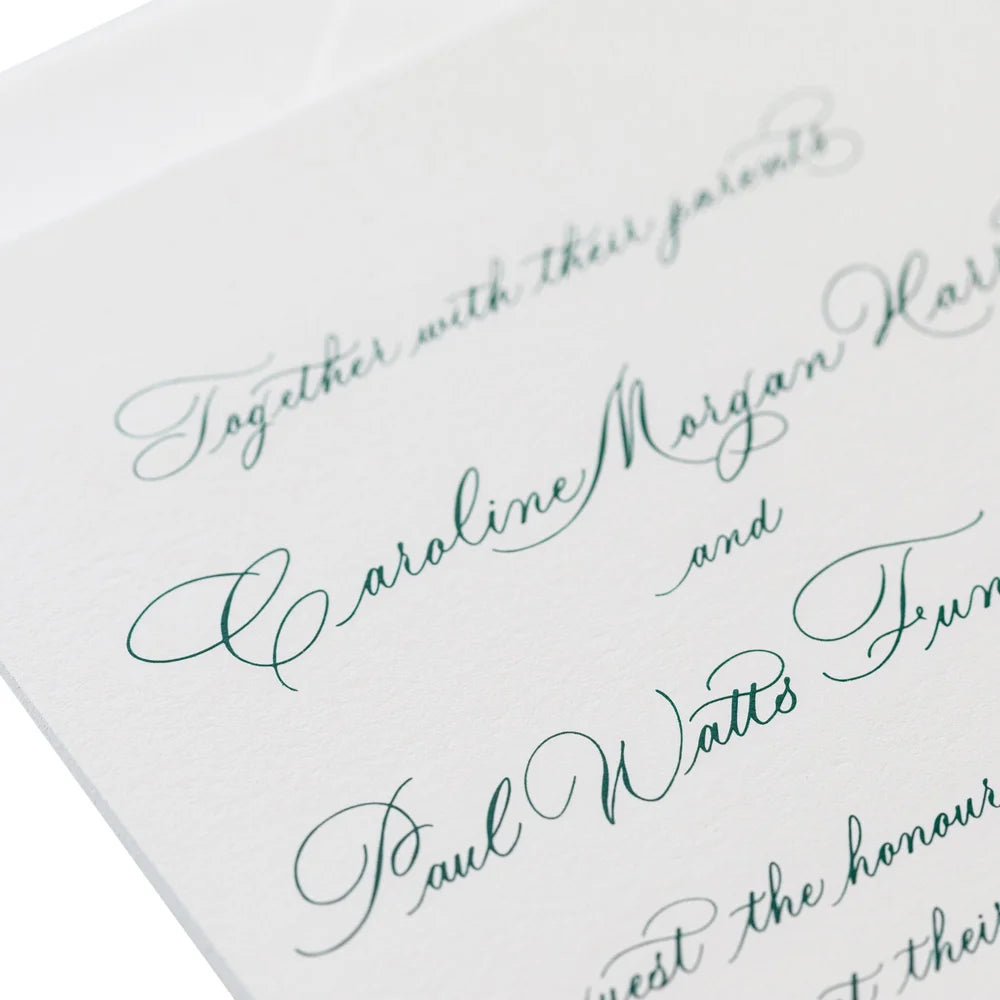 Together with their parents
Caroline Morgan
and
Paul Watts
the honour
their